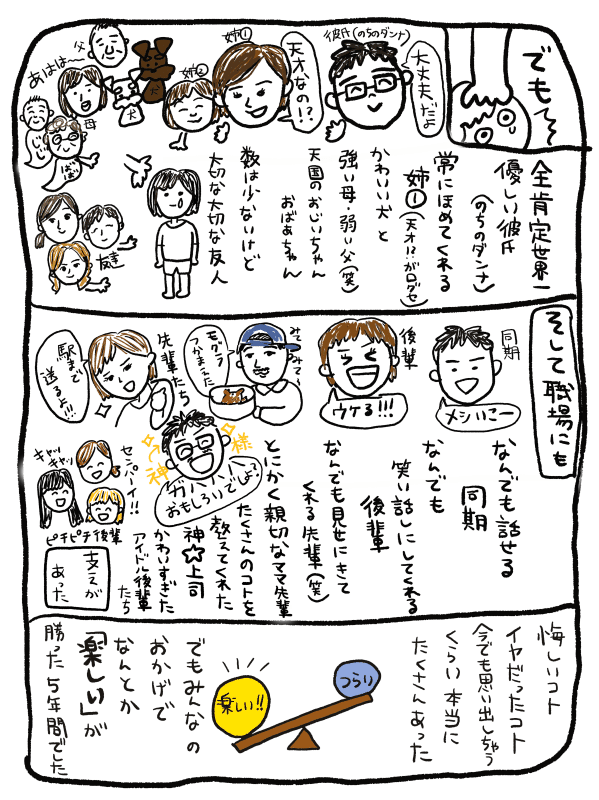 でも〜
全肯定世界一
優しい彼氏
(のちのダンナ)
常にほめてくれる
姉①(天才!?がログセ)
かわいい犬と
強い母・弱い父(笑)
天国のおじいちゃん
おばあちゃん
数は少ないけど
大切な大切な友人
大丈夫だよ
彼氏(のちのダンナ)
天才なの!?
姉①
姉②
父
犬
犬
あはは〜
母
じいじ
ばあば
友達
そして職場にも
なんでも話せる
同期
なんでも
笑い話しにしてくれる
後輩
なんでも見せにきて
くれる先輩(笑)
とにかく親切なママ先輩
たくさんのコトを
教えてくれた
神☆上司
かわいすぎた
アイドル後輩
たち
同期
メシいこー
後輩
ウケる!!!
みてみて〜
モグラ
つかまえた
先輩たち
駅まで
送るよ!!!
神様
ガハハハハ
おもしろいでしょ?
センパーイ!!
キャッキャッ
ピチピチ後輩
支えが
あった
悔しいコト
イヤだったコト
今でも思い出しちゃう
くらい本当に
たくさんあった
つらい
楽しい!!
でもみんなの
おかげで
なんとか
「楽しい」が
勝った5年間でした